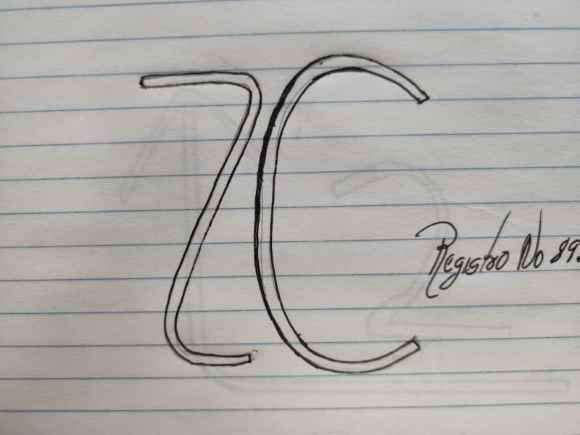 ZC
Registro No 89